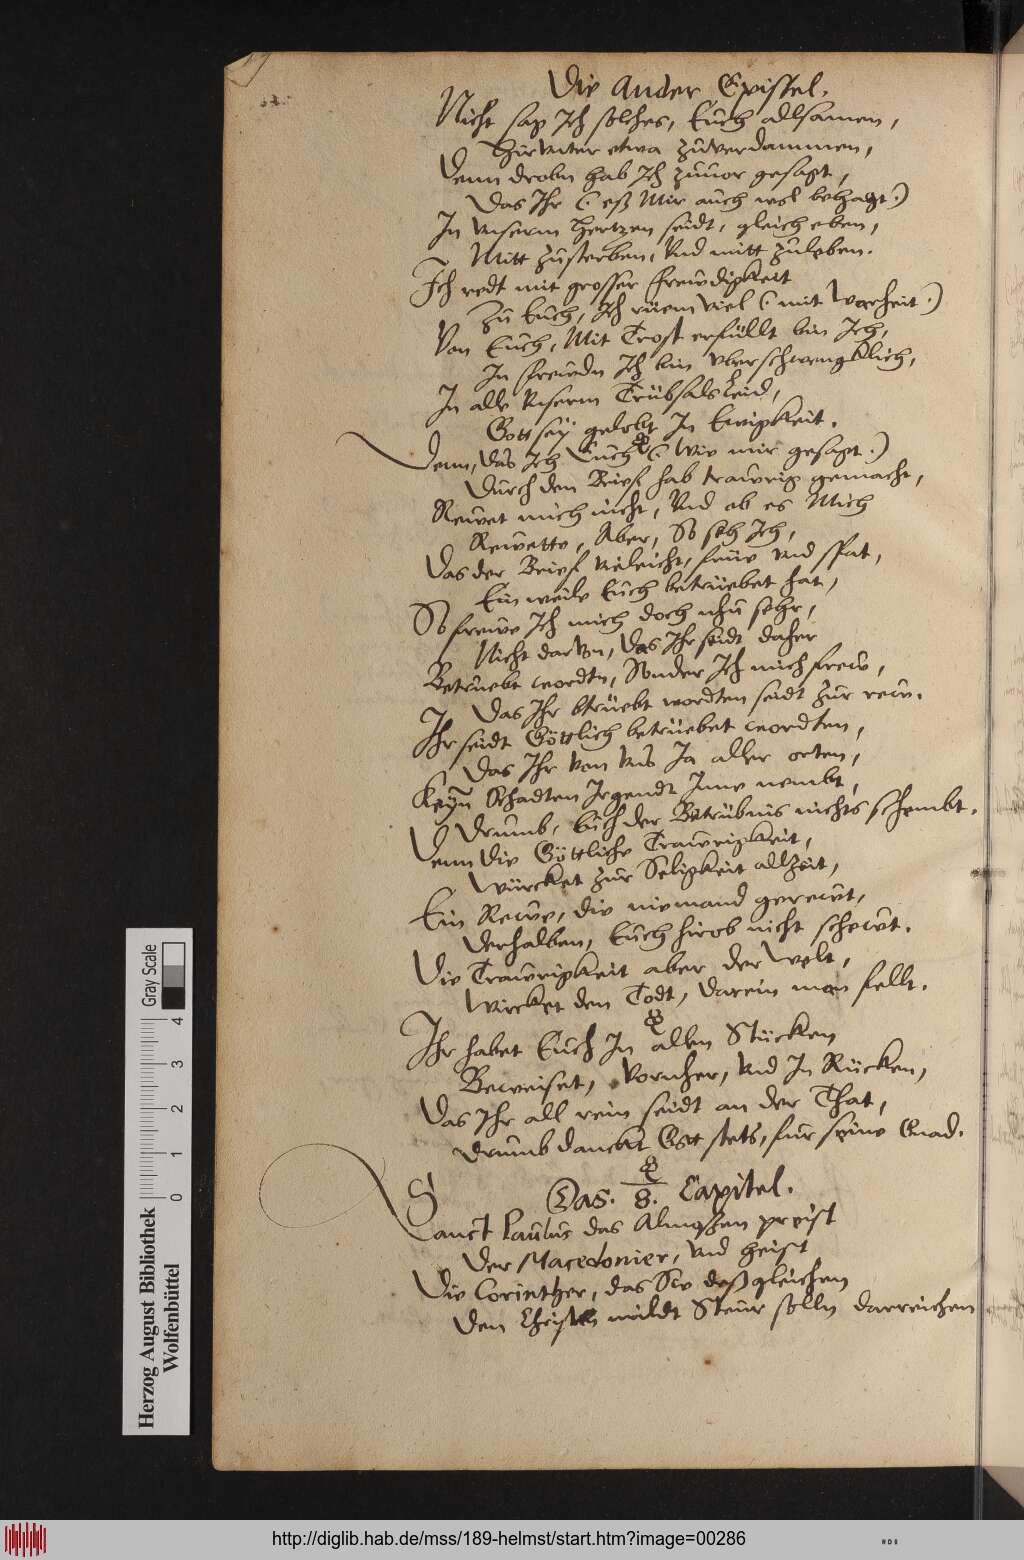 Die Ander Epistel.
Nicht sag Ich solches, Euch allsamen,
Hirunter etwa zuverdammen,
Denn drobn hab Ich zuuor gesagt,
Das Ihr (: eß Mir auch wol behagt :)
In Unserm Hertzen seidt, gleich eben,
Mitt zusterben, Und mitt zuleben.
Ich redt mit grosser freudigkeit
Zu Euch, Ich rüem viel (: mit Warheit :)
Von Euch, Mit Trost erfüllt bin Ich,
In freudn Ich bin uberschwengklich,
In alle Unserm Trübsals Leid,
Gott sey gelobt In Ewigkeit.
Denn, das Ich Euch (: wie mir gesagt :)
Durch den Brief hab traurig gemacht,
Rewet mich nicht, Und ob es Mich
Rewette, Aber, So seh Ich,
Das der Brief vieleicht, frue und spat,
Ein weile Euch betrüebet hat,
So frewe Ich mich doch nhu sehr,
Nicht darVon, das Ihr seidt daher
Betruebt wordtn, Sonder Ich mich frew,
Das Ihr btruebt wordten seidt zur rew.
Ihr seidt Göttlich betruebet wordten,
Das Ihr Von Uns In aller orten,
Keyn Schadten Irgendt Inne nembt,
Drumb, Euch der Betrübnis nichts schembt.
Denn die Göttliche Traurigkeit,
Würcket zur Seligkeit allzeit,
Ein Rewe, die niemand gerewt,
Derhalben, Euch hirob nicht schewt.
Die Traurigkeit aber der Welt,
Wircket den Todt, darein man fellt.
Ihr habet Euch In allen Stücken
Beweiset, Vornher, Und In Rücken,
Das Ihr all rein seidt an der That,
Drumb danckt Gott stets, für seine Gnad.
Das. 8. Capitel.
Sanct Paulus das Almoßen preist
Der Macedonier, und heist
Die Corinther, das Sie deßgleichen
Den Christen mildt Steur solln darreichen
Gray Scale
0 1 2 3 4
Herzog August Bibliothek
Wolfenbüttel
http://diglib.hab.de/mss/189-helmst/start.htm?image=00286